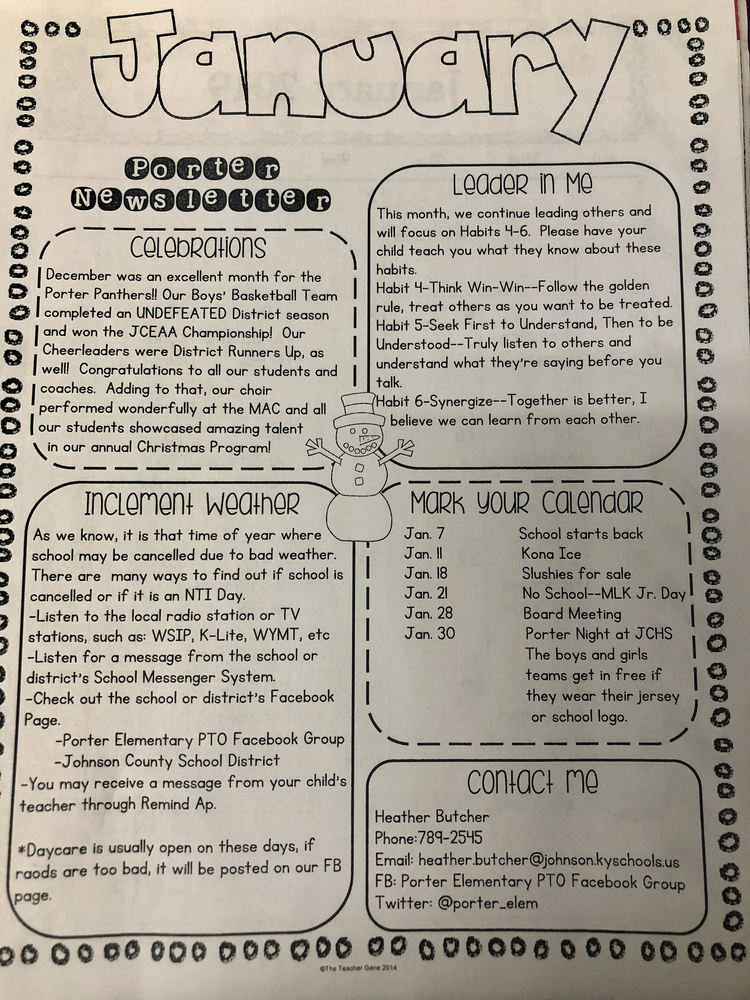 January
Porter
Newsletter
Celebrations
December was an excellent month for the
Porter Panthers!! Our Boys' Basketball Team
completed an UNDEFEATED District season
and won the JCEAA Championship! Our
Cheerleaders were District Runners Up, as
well! Congratulations to all our students and
coaches. Adding to that, our choir
performed wonderfully at the MAC and all
our students showcased amazing talent
in our annual Christmas Program!
Leader in Me
This month, we continue leading others and
will focus on Habits 4-6. Please have your
child teach you what they know about these
habits.
Habit 4-Think Win-Win--Follow the golden
rule, treat others as you want to be treated.
Habit 5-Seek First to Understand, Then to be
Understood--Truly listen to others and
understand what they're saying before you
talk.
Habit 6-Synergize--Together is better, I
believe we can learn from each other.
Inclement Weather
As we know, it is that time of year where
school may be cancelled due to bad weather.
There are many ways to find out if school is
cancelled or if it is an NTI Day.
-Listen to the local radio station or TV
stations, such as: WSIP, K-Lite, WYMT, etc
-Listen for a message from the school or
district's School Messenger System.
-Check out the school or district's Facebook
Page.
-Porter Elementary PTO Facebook Group
-Johnson County School District
-You may receive a message from your child's
teacher through Remind Ap.
*Daycare is usually open on these days, if
raods are too bad, it will be posted on our FB
page.
Mark Your Calendar
Jan. 7 School starts back
Jan. 11 Kona Ice
Jan. 18 Slushies for sale
Jan. 21 No School--MLK Jr. Day
Jan. 28 Board Meeting
Jan. 30 Porter Night at JCHS
The boys and girls
teams get in free if
they wear their jersey
or school logo.
Contact Me
Heather Butcher
Phone:789-2545
Email: heather.butcher@johnson.kyschools.us
FB: Porter Elementary PTO Facebook Group
Twitter: @porter_elem
©The Teacher Gene 2014